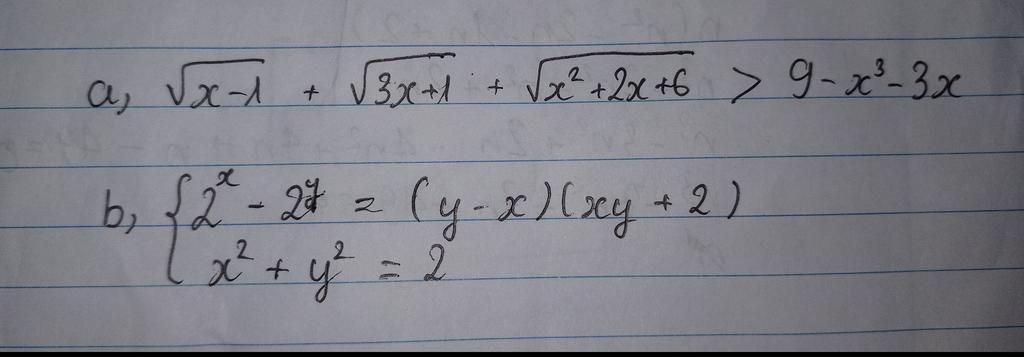 a, √(x-1) + √(3x+1) + √(x²+2x+6) > 9-x³-3x
b, { 2ˣ - 2ʸ = (y-x)(xy+2)
x² + y² = 2